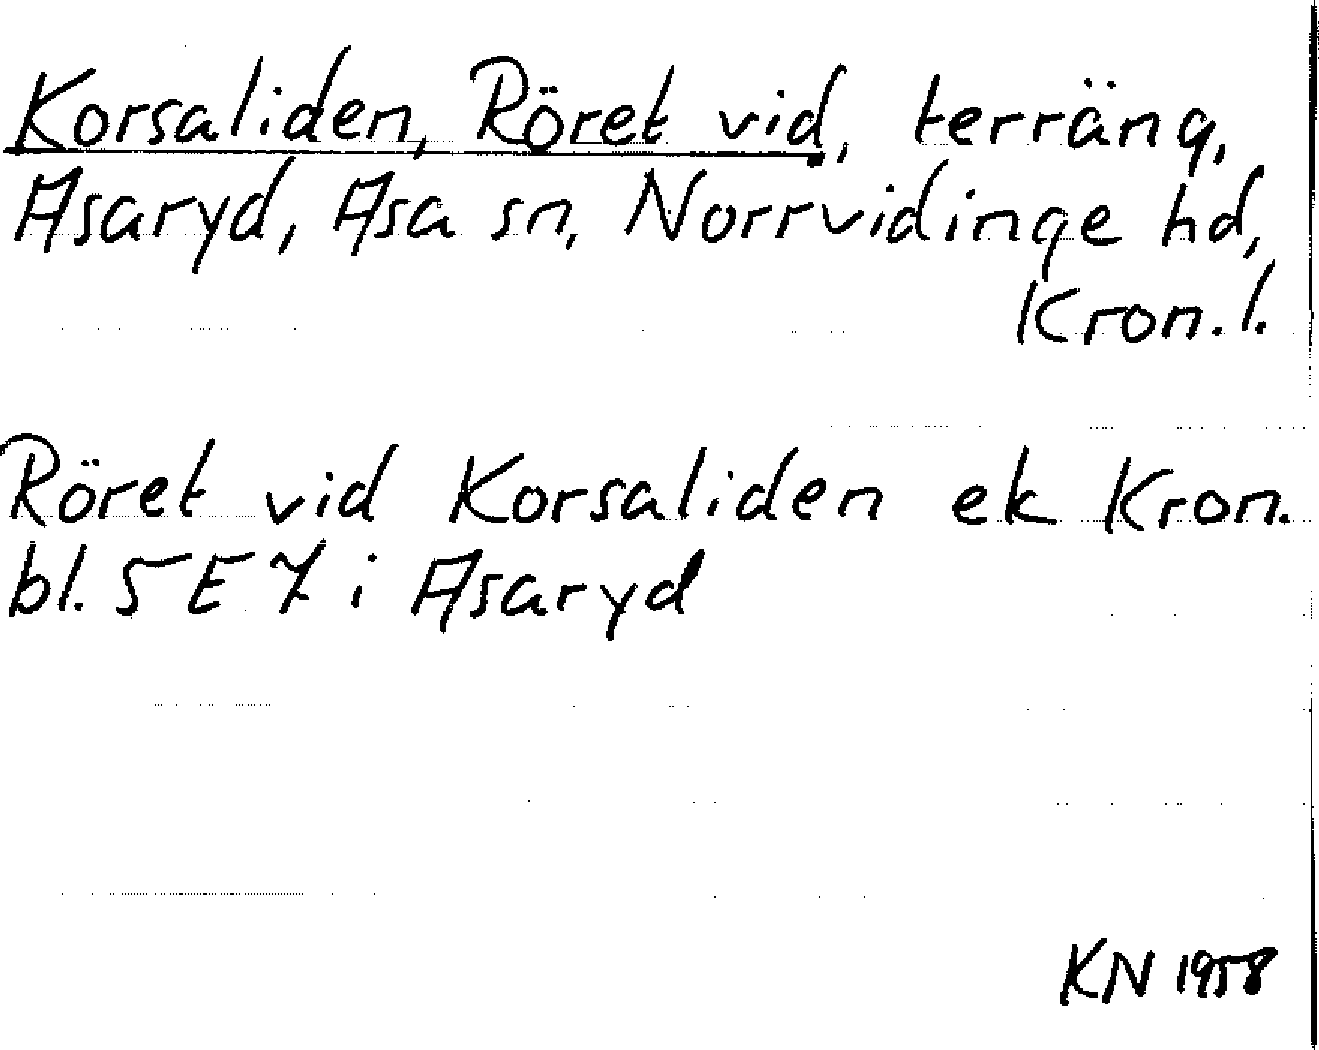 Korsaliden, Röret vid, terräng,
Asaryd, Asa sn, Norrvidinge hd,
Kron.l.
Röret vid Korsaliden ek Kron.
bl. 5 E 7 i Asaryd
KN 1958